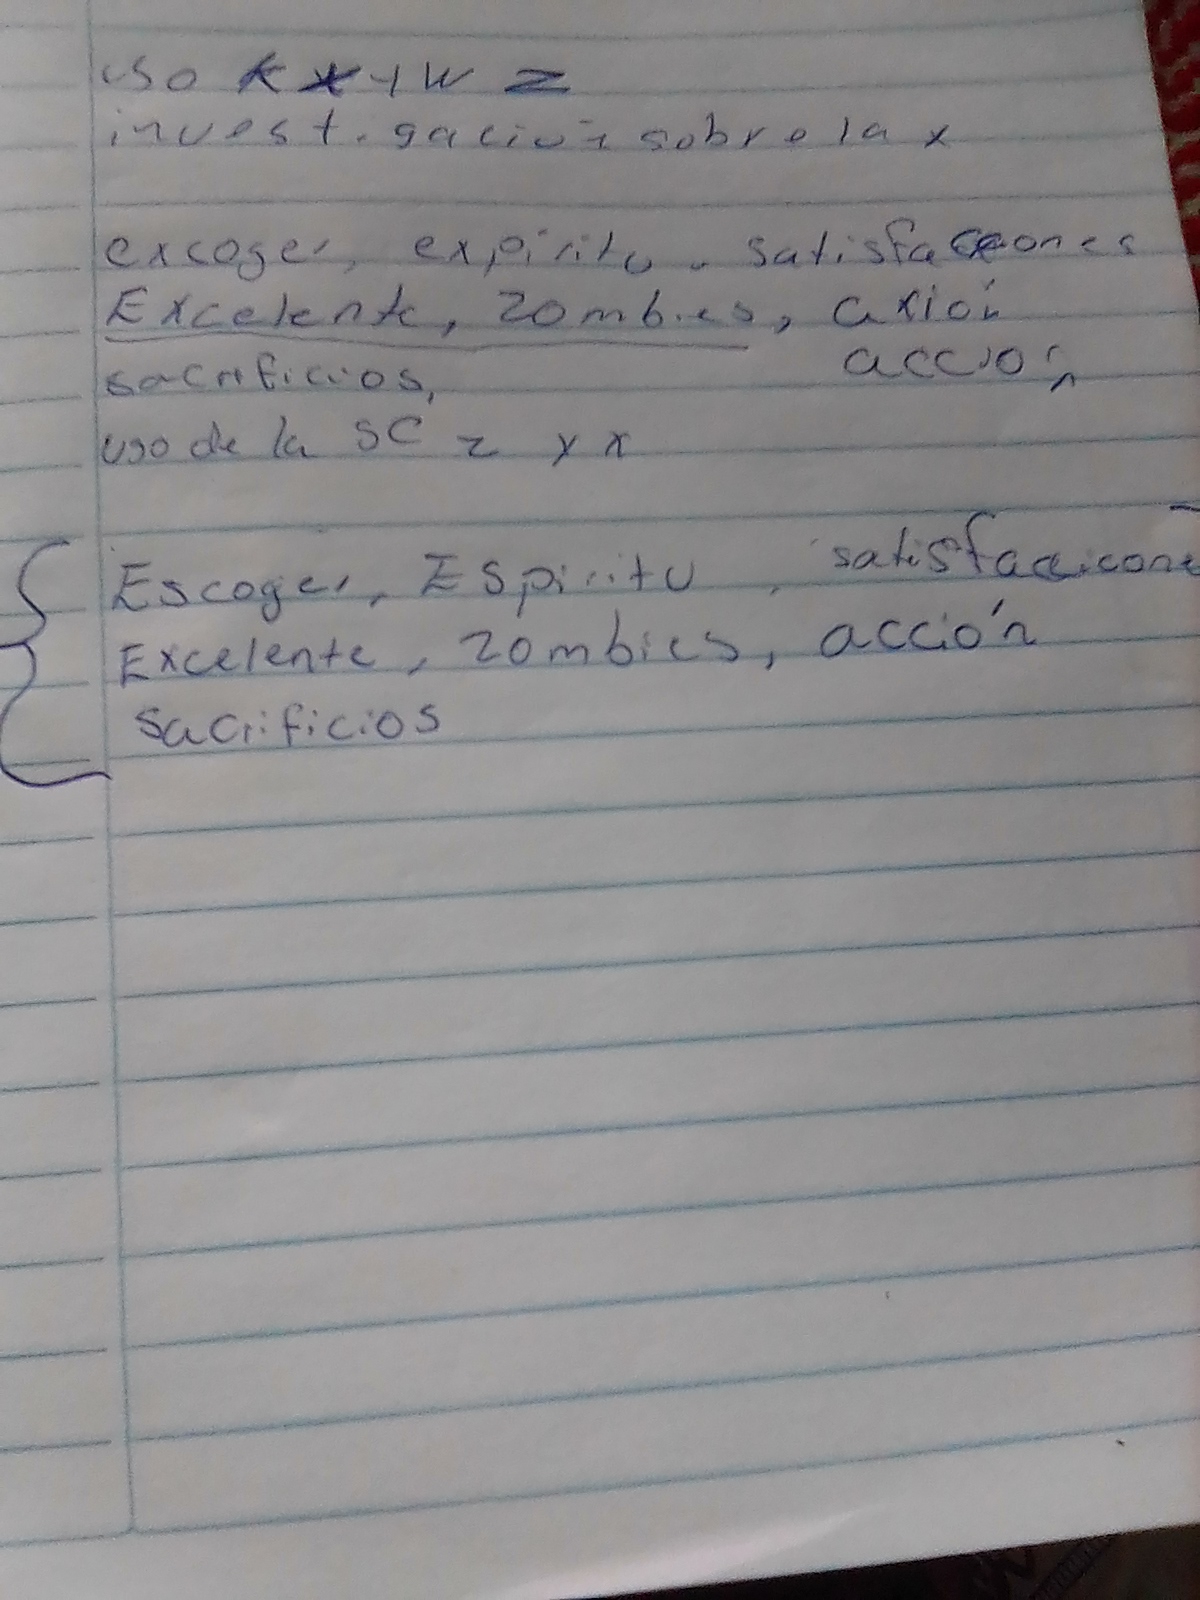 uso k x y w z
investigación sobre la x
excoger, expiritu. satisfacciones
Excelente, zombies, axión
acción
sacrificios,
uso de la SC z y x
Escoger, Espiritu, satisfaccione
Excelente, zombies, acción
sacrificios